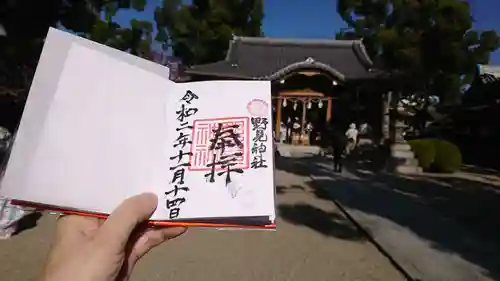 野見神社
奉拝
令和二年十一月十四日